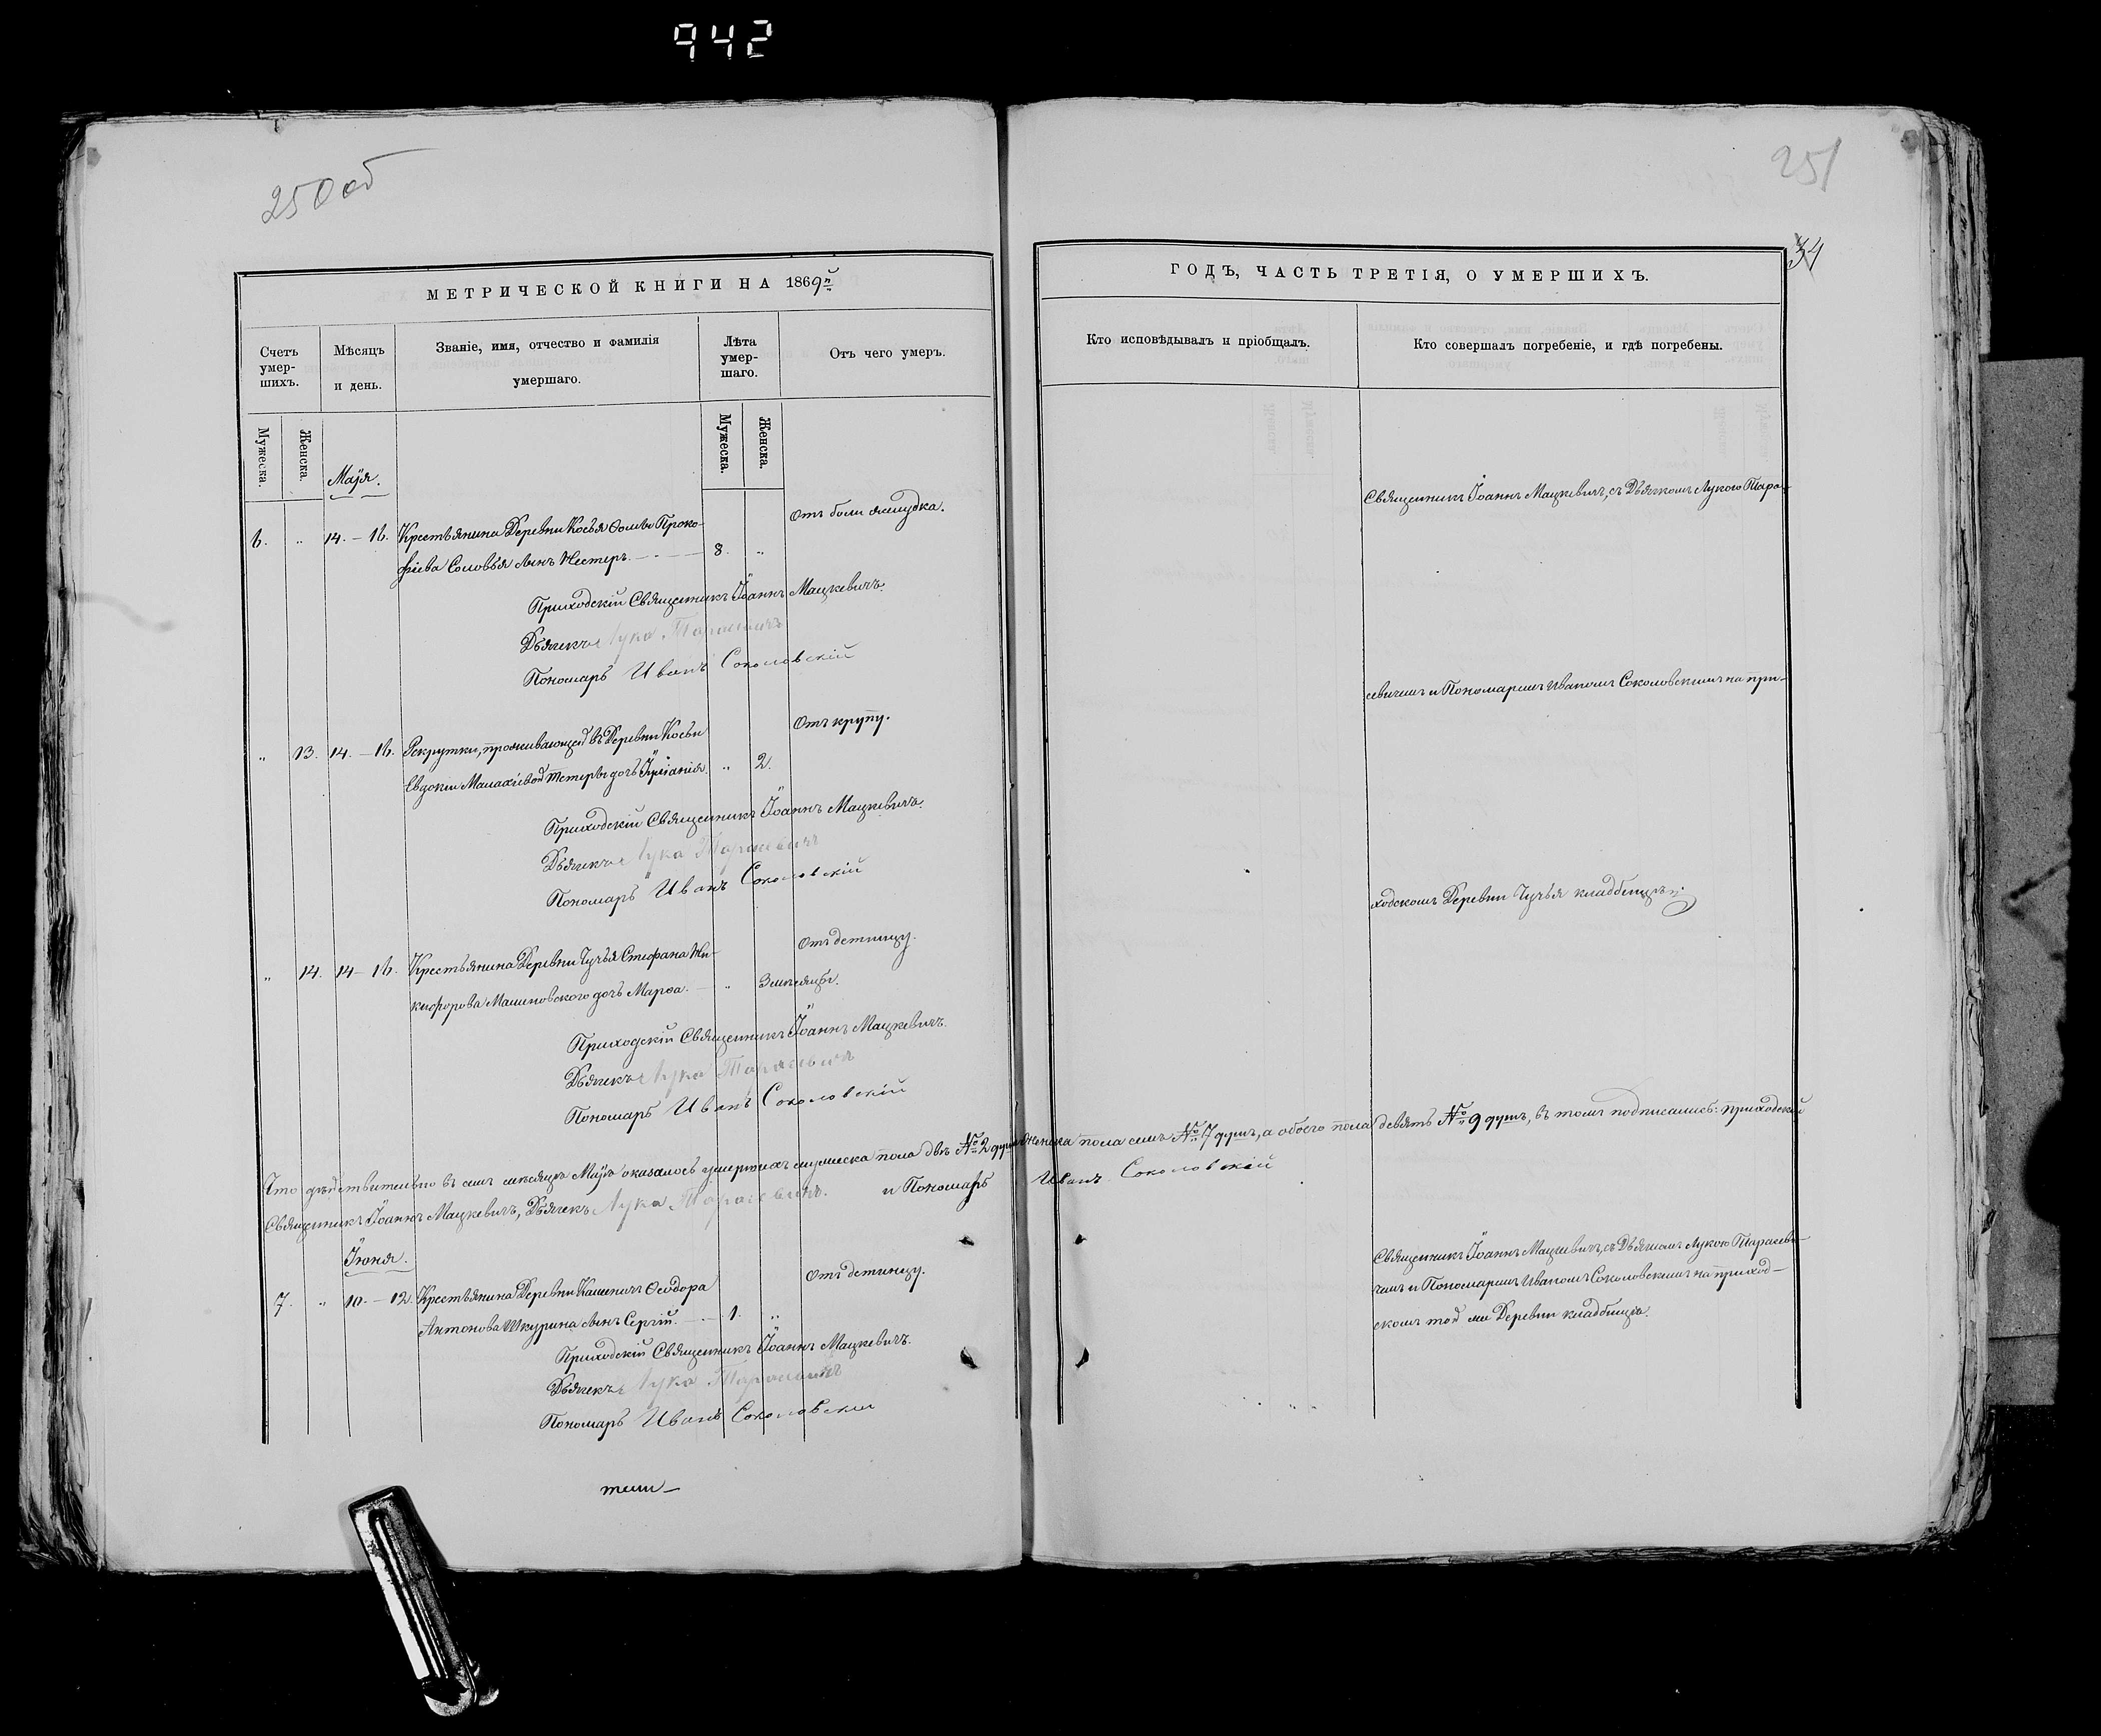 942
250 об
251
34
МЕТРИЧЕСКОЙ КНИГИ НА 1869й
ГОДЪ, ЧАСТЬ ТРЕТІЯ, О УМЕРШИХЪ.
Счетъ умер-
шихъ.
Мѣсяцъ
и день.
Званіе, имя, отчество и фамилія
умершаго.
Лѣта
умер-
шаго.
Отъ чего умеръ.
Кто исповѣдывалъ и пріобщалъ.
Кто совершалъ погребеніе, и гдѣ погребены.
Мужеска.
Женска.
Мужеска.
Женска.
Маія.
6. „ 14.—16. Крестьянина Деревни Косья Ѳомы Проко-
фіева Соловья сынъ Нестеръ. 8. „
Отъ боли желудка.
Приходскій Священникъ Іоаннъ Мацкевичъ.
Дьячекъ Лука Тарасевичъ
Пономарь Иванъ Соколовскій
„ 13. 14.—16. Рекрутки, проживающей въ Деревни Косьи
Евдокіи Малахіевой Тетеры дочь „ 2.
Отъ крупу.
Приходскій Священникъ Іоаннъ Мацкевичъ.
Дьячекъ Лука Тарасевичъ
Пономарь Иванъ Соколовскій
„ 14. 14—16. Крестьянина Деревни Чучья Стефана Ни-
кифорова Малиновскаго дочь Марѳа. „ 3 мѣсяцы.
Отъ детинцу.
Приходскій Священникъ Іоаннъ Мацкевичъ.
Дьячекъ Лука Тарасевичъ
Пономарь Иванъ Соколовскій
Священникъ Іоаннъ Мацкевичъ, съ Дьячкомъ Лукою Тара-
севичемъ и Пономаремъ Иваномъ Соколовскимъ на при-
ходскомъ Деревни Чучья кладбищѣ.
Что дѣйствительно въ семъ мѣсяцѣ Маіѣ оказалось умершихъ мужеска пола двѣ № 2 душы Женска пола семь № 7 душъ, а обоего пола девять № 9 душъ, въ томъ подписались: приходскій
Священникъ Іоаннъ Мацкевичъ, Дьячекъ Лука Тарасевичъ. и Пономарь Иванъ Соколовскій
Іюня.
7. „ 10.—12. Крестьянина Деревни Ѳеодора
Антонова Шкурина сынъ Сергій. 1. „
Отъ детинцу.
Приходскій Священникъ Іоаннъ Мацкевичъ.
Дьячекъ Лука Тарасевичъ
Пономарь Иванъ Соколовскій
Священникъ Іоаннъ Мацкевичъ, съ Дьячкомъ Лукою Тарасеви-
чемъ и Пономаремъ Иваномъ Соколовскимъ на приход-
скомъ той же Деревни кладбищѣ.